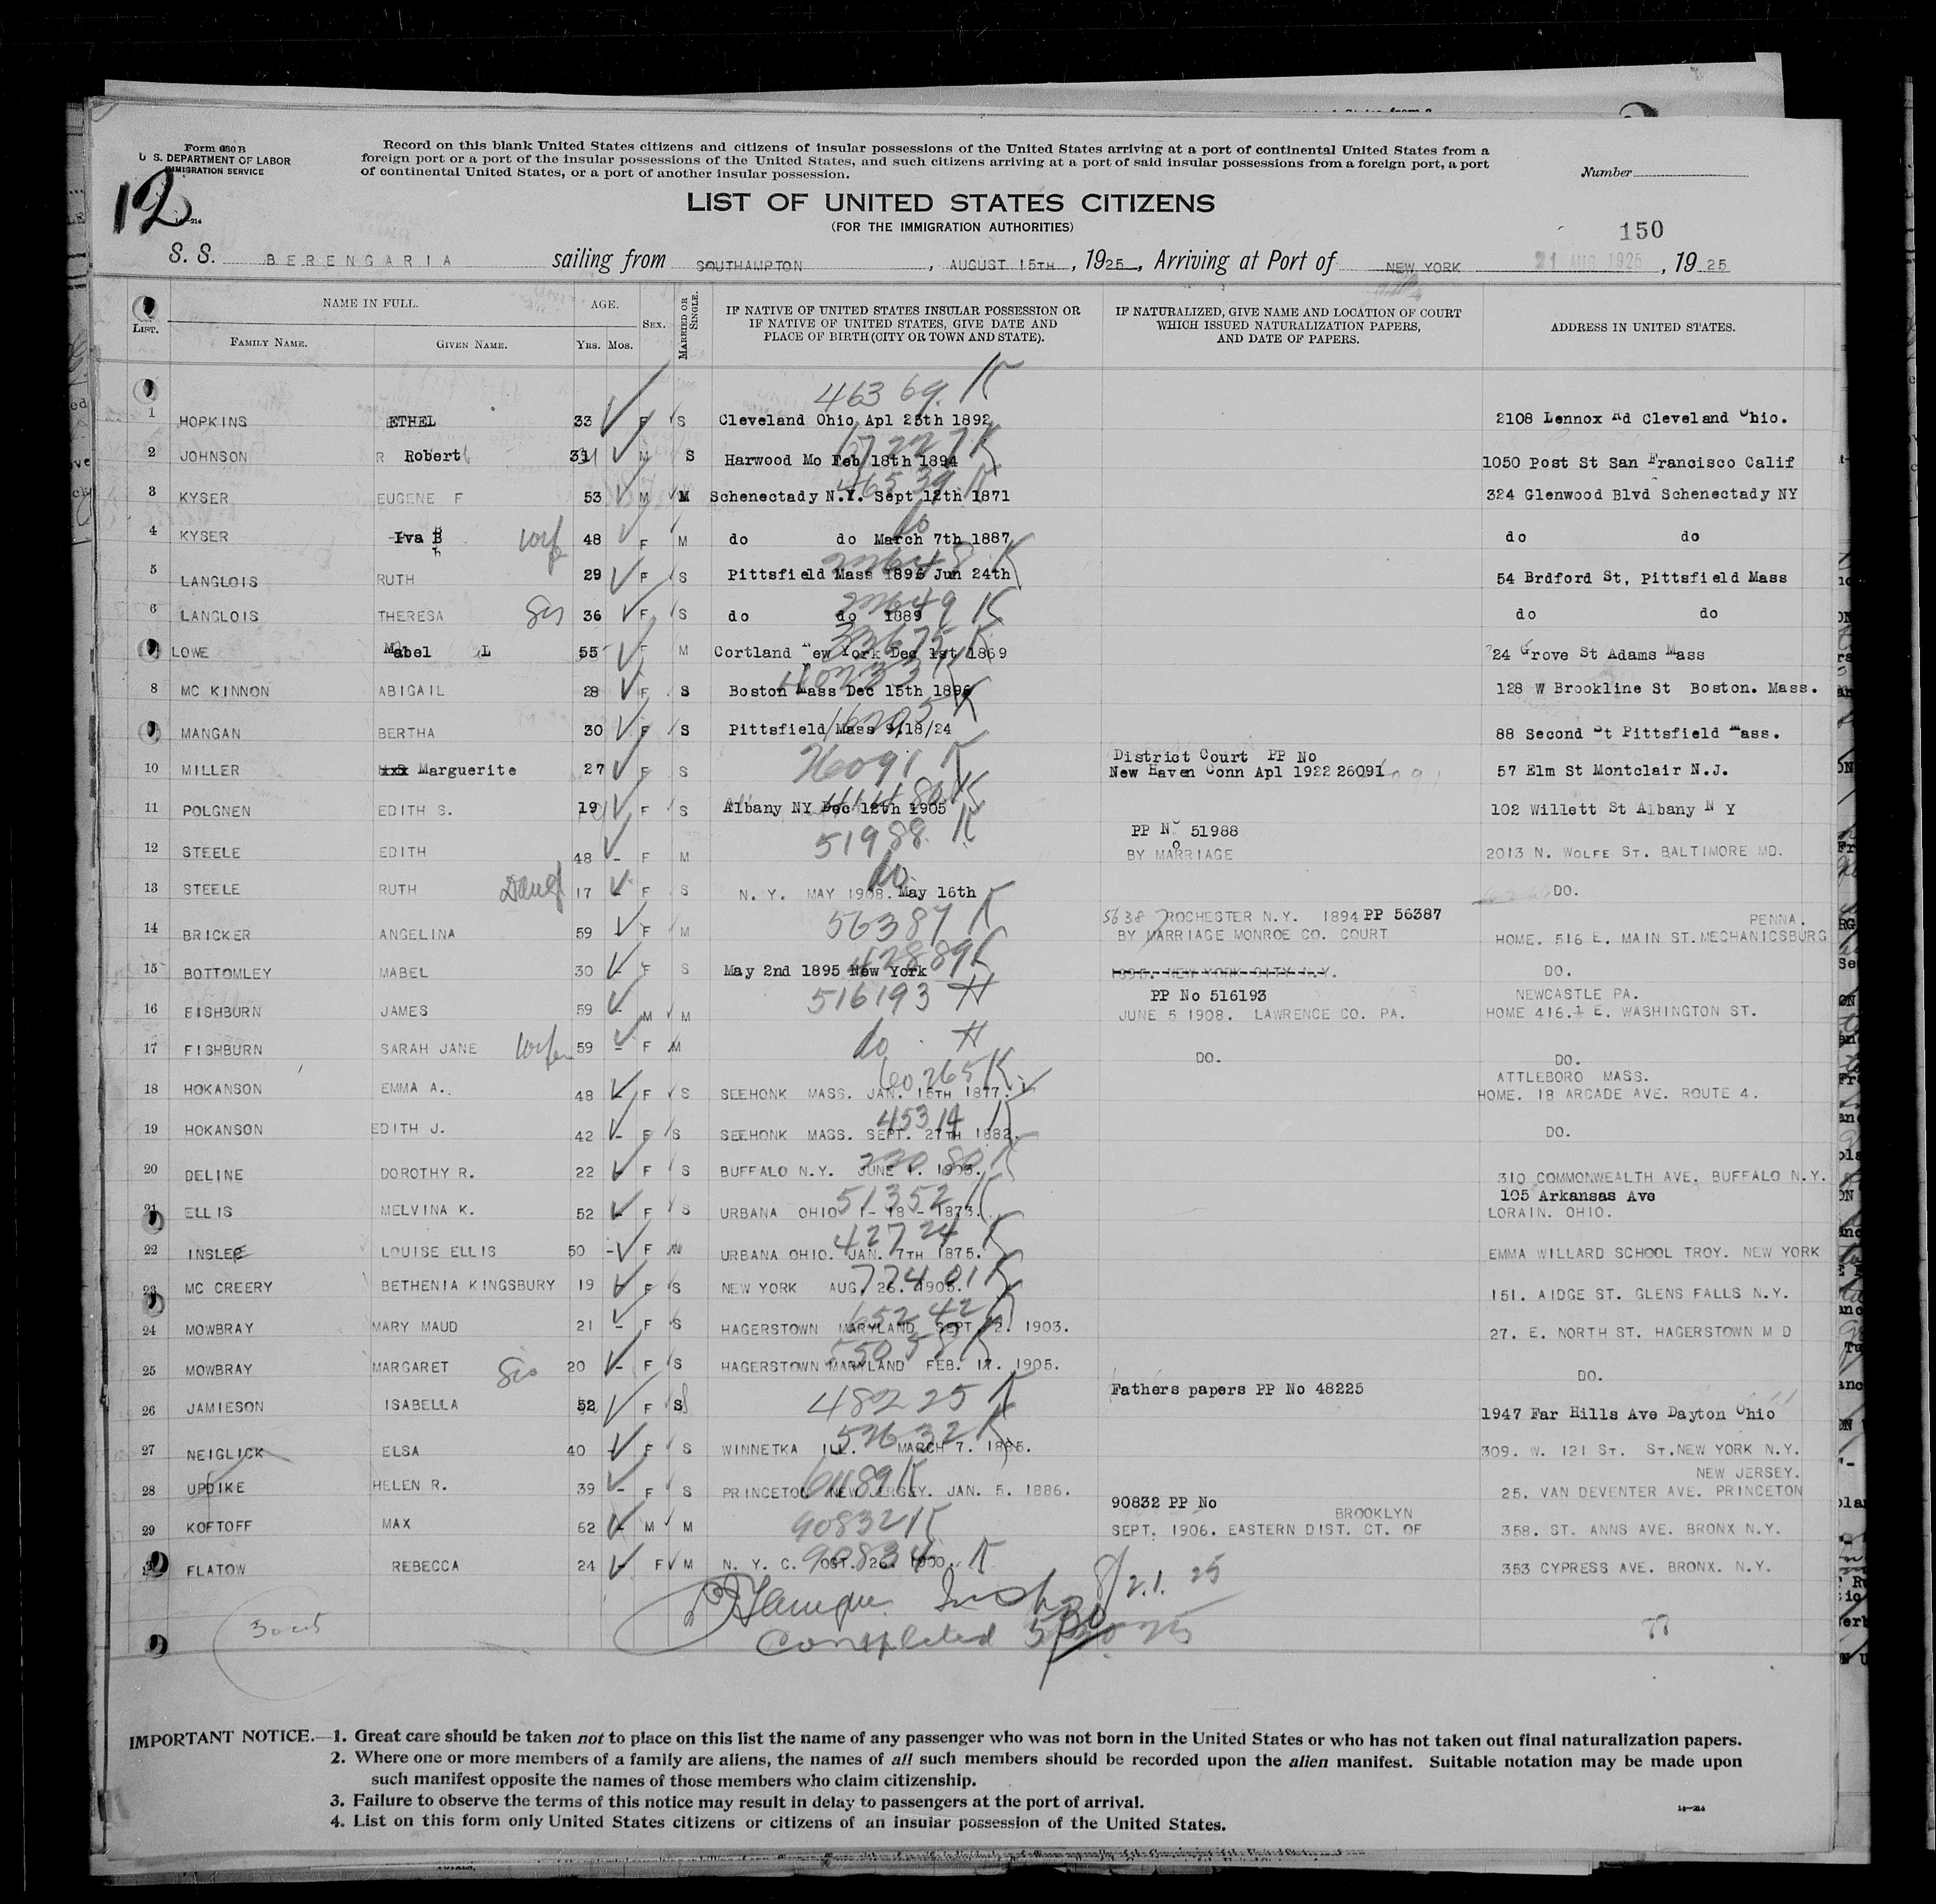 Form 630 B
U. S. DEPARTMENT OF LABOR
IMMIGRATION SERVICE
12
14—214
Record on this blank United States citizens and citizens of insular possessions of the United States arriving at a port of continental United States from a
foreign port or a port of the insular possessions of the United States, and such citizens arriving at a port of said insular possessions from a foreign port, a port
of continental United States, or a port of another insular possession.
Number
LIST OF UNITED STATES CITIZENS
(FOR THE IMMIGRATION AUTHORITIES)
150
S. S. BERENGARIA sailing from SOUTHAMPTON , AUGUST 15TH , 1925, Arriving at Port of NEW YORK 21 AUG 1925 , 19 25
LIST. NAME IN FULL. FAMILY NAME. GIVEN NAME. AGE. YRS. MOS. SEX. MARRIED OR SINGLE. IF NATIVE OF UNITED STATES INSULAR POSSESSION OR IF NATIVE OF UNITED STATES, GIVE DATE AND PLACE OF BIRTH (CITY OR TOWN AND STATE). IF NATURALIZED, GIVE NAME AND LOCATION OF COURT WHICH ISSUED NATURALIZATION PAPERS, AND DATE OF PAPERS. ADDRESS IN UNITED STATES.
46369. K
1 HOPKINS ETHEL 33 F S Cleveland Ohio Apl 25th 1892 2108 Lennox Rd Cleveland Ohio.
2 JOHNSON R Robert 31 M S Harwood Mo Feb 18th 1894 1050 Post St San Francisco Calif
46539 K
3 KYSER EUGENE F 53 M M Schenectady N.Y. Sept 12th 1871 324 Glenwood Blvd Schenectady NY
do
4 KYSER Iva B wife 48 F M do do March 7th 1887 do do
5 LANGLOIS RUTH 29 F S Pittsfield Mass 1896 Jun 24th 54 Brdford St, Pittsfield Mass
22649 K
6 LANGLOIS THERESA Sis 36 F S do do 1889 do do
33675 K
LOWE Mabel L 55 F M Cortland New York Dec 1st 1869 24 Grove St Adams Mass
40233 K
8 MC KINNON ABIGAIL 28 F S Boston Mass Dec 15th 1896 128 W Brookline St Boston. Mass.
MANGAN BERTHA 30 F S Pittsfield Mass 9/18/24 88 Second St Pittsfield Mass.
26091 K District Court PP No
10 MILLER Marguerite 27 F S New Haven Conn Apl 1922 26091 57 Elm St Montclair N.J.
11 POLGNEN EDITH S. 19 F S Albany NY Dec 12th 1905 102 Willett St Albany N Y
51988. K PP No 51988
12 STEELE EDITH 48 F M BY MARRIAGE 2013 N. WOLFE ST. BALTIMORE MD.
do
13 STEELE RUTH Daug 17 F S N. Y. MAY 1908. May 16th DO.
56387 K 56387 ROCHESTER N.Y. 1894 PP 56387 PENNA.
14 BRICKER ANGELINA 59 F M BY MARRIAGE MONROE CO. COURT HOME. 516 E. MAIN ST. MECHANICSBURG
42889 K
15 BOTTOMLEY MABEL 30 F S May 2nd 1895 New York 1895. NEW YORK CITY N.Y. DO.
516193 H PP No 516193 NEWCASTLE PA.
16 FISHBURN JAMES 59 M M JUNE 5 1908. LAWRENCE CO. PA. HOME 416.½ E. WASHINGTON ST.
17 FISHBURN SARAH JANE wife 59 F M do H DO. DO.
60265 K ATTLEBORO MASS.
18 HOKANSON EMMA A. 48 F S SEEHONK MASS. JAN. 15TH 1877. HOME. 18 ARCADE AVE. ROUTE 4.
45314 K
19 HOKANSON EDITH J. 42 F S SEEHONK MASS. SEPT. 27TH 1882. DO.
20 DELINE DOROTHY R. 22 F S BUFFALO N.Y. JUNE 1. 1903. 310 COMMONWEALTH AVE. BUFFALO N.Y.
51352 K 105 Arkansas Ave
21 ELLIS MELVINA K. 52 F S URBANA OHIO 1- 18 - 1873. LORAIN. OHIO.
42724 K
22 INSLEE LOUISE ELLIS 50 F W URBANA OHIO. JAN. 7TH 1875. EMMA WILLARD SCHOOL TROY. NEW YORK
77401 K
23 MC CREERY BETHENIA KINGSBURY 19 F S NEW YORK AUG. 26. 1905. 151. AIDGE ST. GLENS FALLS N.Y.
65242 K
24 MOWBRAY MARY MAUD 21 F S HAGERSTOWN MARYLAND SEPT. 2. 1903. 27. E. NORTH ST. HAGERSTOWN M D
55058 K
25 MOWBRAY MARGARET Sis 20 F S HAGERSTOWN MARYLAND FEB. 17. 1905. DO.
48225 K Fathers papers PP No 48225
26 JAMIESON ISABELLA 52 F S 1947 Far Hills Ave Dayton Ohio
52632 K
27 NEIGLICK ELSA 40 F S WINNETKA ILL. MARCH 7. 1885. 309. W. 121 ST. ST. NEW YORK N.Y.
61189 K NEW JERSEY.
28 UPDIKE HELEN R. 39 F S PRINCETON NEW JERSEY. JAN. 5. 1886. 25. VAN DEVENTER AVE. PRINCETON
90832 K 90832 PP No BROOKLYN
29 KOFTOFF MAX 62 M M SEPT. 1906. EASTERN DIST. CT. OF 358. ST. ANNS AVE. BRONX N.Y.
90834 K
FLATOW REBECCA 24 F M N. Y. C. OCT. 26. 1900. 353 CYPRESS AVE. BRONX. N.Y.
8/21. 25
Completed
IMPORTANT NOTICE.—1. Great care should be taken not to place on this list the name of any passenger who was not born in the United States or who has not taken out final naturalization papers.
2. Where one or more members of a family are aliens, the names of all such members should be recorded upon the alien manifest. Suitable notation may be made upon
such manifest opposite the names of those members who claim citizenship.
3. Failure to observe the terms of this notice may result in delay to passengers at the port of arrival.
4. List on this form only United States citizens or citizens of an insular possession of the United States.
14—214